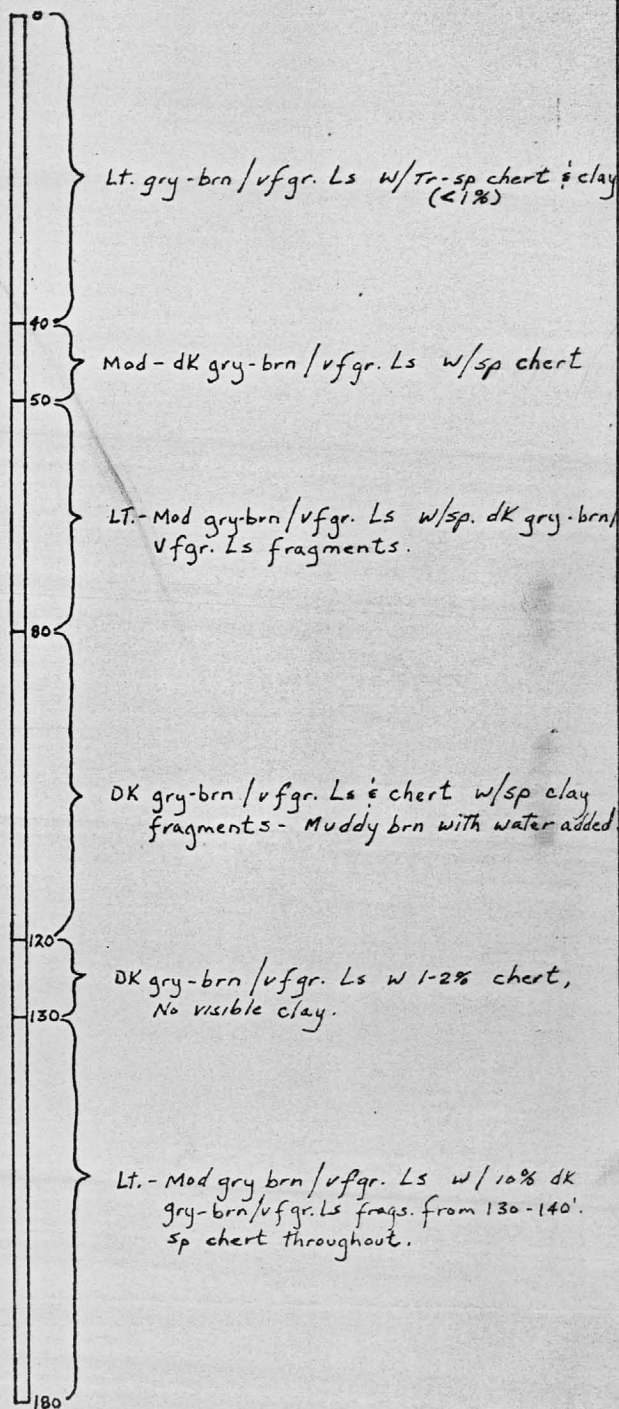 0
Lt. gry-brn/vfgr. Ls w/Tr-sp chert & clay
(<1%)
40
Mod-dk gry-brn/vfgr. Ls w/sp chert
50
LT.-Mod gry-brn/vfgr. Ls w/sp. dk gry-brn/
vfgr. Ls fragments.
80
DK gry-brn/vfgr. Ls & chert w/sp clay
fragments- Muddy brn with water added.
120
DK gry-brn/vfgr. Ls w 1-2% chert,
No visible clay.
130
Lt.-Mod gry brn/vfgr. Ls w/10% dk
gry-brn/vfgr. Ls frags. from 130-140'.
sp chert throughout.
180